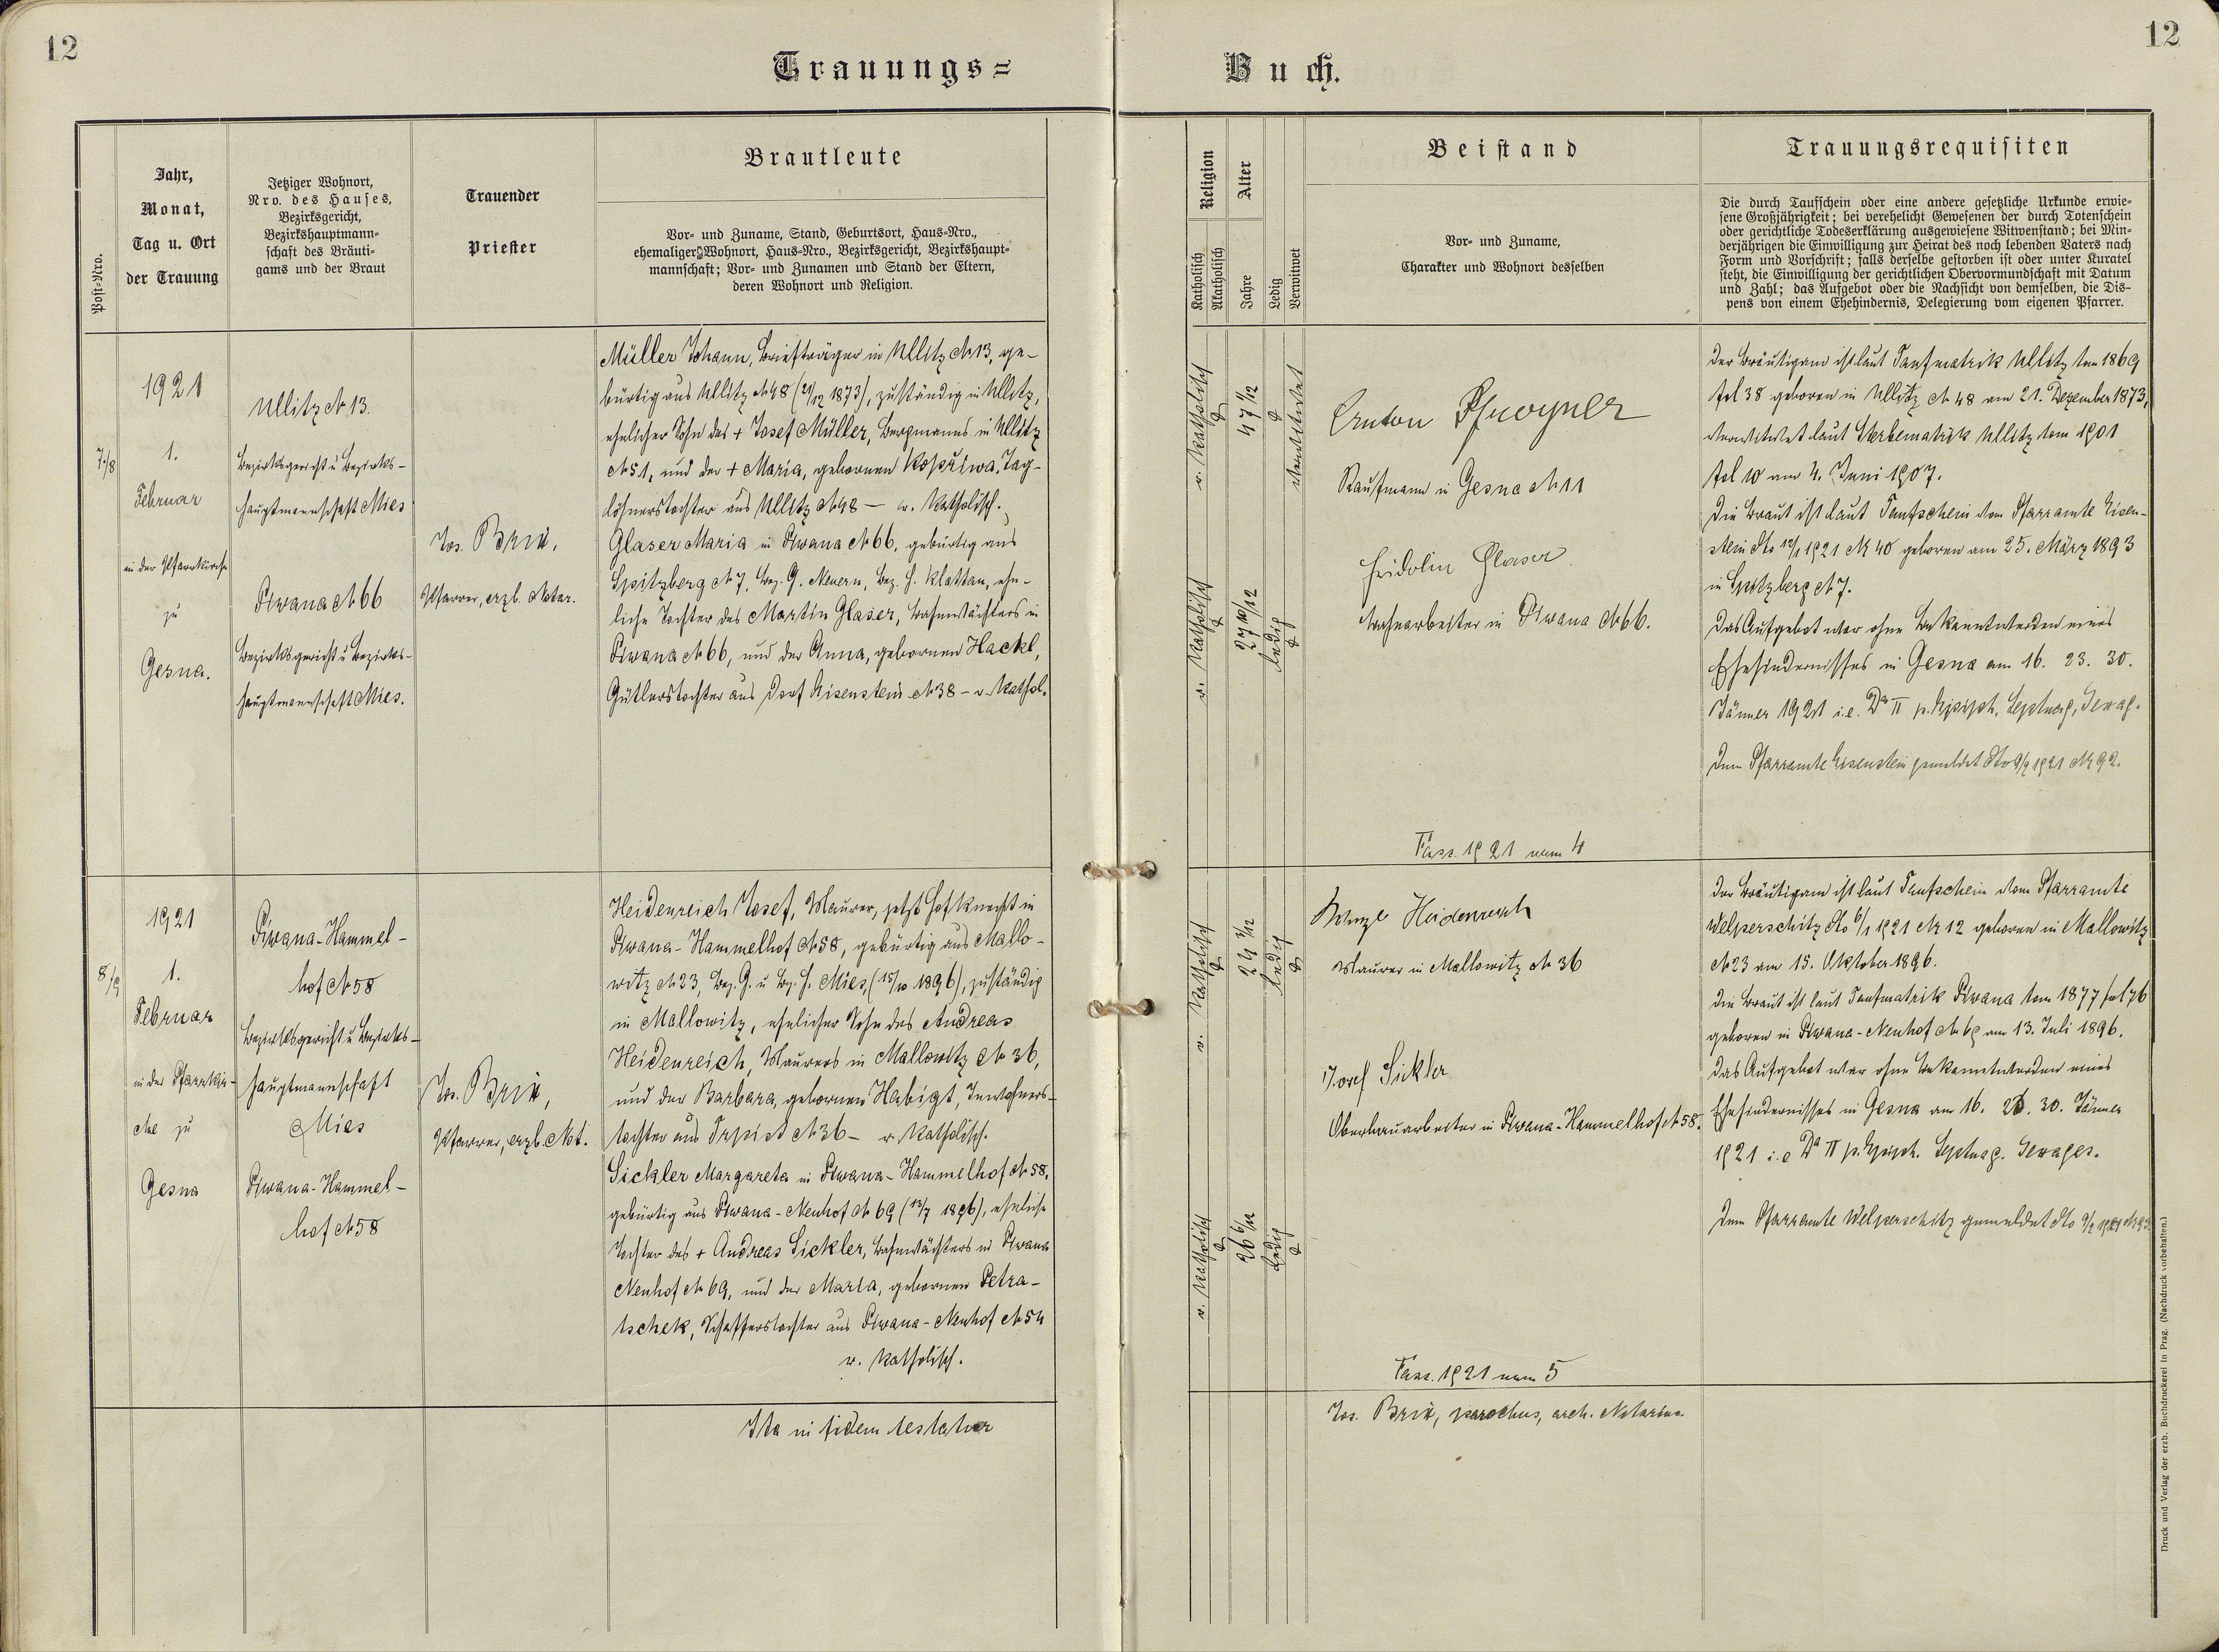 12
12
Trauungs=
Buch.
Post=Nro.
Jahr,
Monat,
Tag u. Ort
der Trauung
Jetziger Wohnort,
Nro. des Hauses,
Bezirksgericht,
Bezirkshauptmann=
schaft des Bräuti=
gams und der Braut
Trauender
Priester
Brautleute
Vor= und Zuname, Stand, Geburtsort, Haus=Nro.,
ehemaliger Wohnort, Haus=Nro., Bezirksgericht, Bezirkshaupt=
mannschaft; Vor= und Zunamen und Stand der Eltern,
deren Wohnort und Religion.
Religion
Katholisch
Akatholisch
Alter
Jahre
Ledig
Verwitwet
Beistand
Vor= und Zuname,
Charakter und Wohnort desselben
Trauungsrequisiten
Die durch Taufschein oder eine andere gesetzliche Urkunde erwie=
sene Großjährigkeit; bei verehelicht Gewesenen der durch Totenschein
oder gerichtliche Todeserklärung ausgewiesene Witwenstand; bei Min=
derjährigen die Einwilligung zur Heirat des noch lebenden Vaters nach
Form und Vorschrift; falls derselbe gestorben ist oder unter Kuratel
steht, die Einwilligung der gerichtlichen Obervormundschaft mit Datum
und Zahl; das Aufgebot oder die Nachsicht von demselben, die Dis=
pens von einem Ehehindernis, Delegierung vom eigenen Pfarrer.
7/8
1921
1.
Februar
in der Pfarrkirche
zu
Gesna.
Ullitz N 13.
Bezirksgericht u Bezirks-
hauptmannschaft Mies
Piwana N 66
Bezirksgericht u Bezirks-
hauptmannschaft Mies.
Jos. Brix,
Pfarrer, erzb. Notar.
Müller Johann, Briefträger in Ullitz N 13, ge-
bürtig aus Ullitz N 48 (21/12 1873), zuständig in Ullitz,
ehelicher Sohn des + Josef Müller, Bergmanns in Ullitz
N 51, und der + Maria, gebornen Kopřiwa, Tag-
löhnerstochter aus Ullitz N 48 — r. katholisch.
Glaser Maria in Piwana N 66, gebürtig aus
Spitzberg N 7, Bez. G. Neuern, Bez. H. Klattau, ehe-
liche Tochter des Martin Glaser, Bahnwächters in
Piwana N 66, und der Anna, gebornen Hackl,
Gütlerstochter aus Dorf Eisenstein N 38 - r. kathol.
r. katholisch
47 1/12
verwitwet
r. katholisch
27 10/12
ledig
Anton
Kaufmann in Gesna N 11
Fridolin Glaser
Bahnarbeiter in Piwana N 66.
Fasz. 1921 num 4
Der Bräutigam ist laut Taufmatrik Ullitz tom 1869
fol 38 geboren in Ullitz N 48 am 21. Dezember 1873,
verwitwet laut Sterbematrik Ullitz tom 1901
fol 10 am 4. Juni 1907.
Die Braut ist laut Taufschein vom Pfarramte Eisen-
stein dto 12/1 1921 N 40 geboren am 25. März 1893
in Spitzberg N 7.
Das Aufgebot war ohne Bekanntwerden eines
Ehehindernisses in Gesna am 16. 23. 30.
Jänner 1921 i.e. Da II p. Epiph. Septuag, Sexag.
Dem Pfarramte Eisenstein gemeldet dto 9/2 1921 N 92.
8/9
1921
1.
Februar
in der Pfarrkir-
che zu
Gesna
Piwana-Hammel-
hof N 58
Bezirksgericht u Bezirks-
hauptmannschaft
Mies
Piwana-Hammel-
hof N 58
Jos. Brix,
Pfarrer, erzb. Not.
Heidenreich Josef, Maurer, jetzt Hofknecht in
Piwana-Hammelhof N 58, gebürtig aus Mallo-
witz N 23, Bez. G. u Bez. H. Mies, (15/10 1896), zuständig
in Mallowitz, ehelicher Sohn des Andreas
Heidenreich, Maurers in Mallowitz N 36,
und der Barbara, gebornen Habigt, Inwohners-
tochter aus Trpist N 36 - r. katholisch.
Sickler Margareta in Piwana-Hammelhof N 58,
gebürtig aus Piwana-Neuhof N 69 (13/7 1896), eheliche
Tochter des + Andreas Sickler, Bahnwächters in Piwana
Neuhof N 69, und der Maria, gebornen Petra-
tschek, Schafferstochter aus Piwana-Neuhof N 54
r. katholisch.
r. katholisch
24 3/12
ledig
r. katholisch
ledig
Wenzl Heidenreich
Maurer in Mallowitz N 36
Josef Sickler
Oberbauarbeiter in Piwana-Hammelhof N 58.
Fasz. 1921 num 5
Der Bräutigam ist laut Taufschein vom Pfarramte
Welperschitz dto 6/1 1921 N 12 geboren in Mallowitz
N 23 am 15. Oktober 1896.
Die Braut ist laut Taufmatrik Piwana tom 1877 fol 76
geboren in Piwana-Neuhof N 69 am 13. Juli 1896.
Das Aufgebot war ohne Bekanntwerden eines
Ehehindernisses in Gesna am 16. 23. 30. Jänner
1921 i.e Da II p. Epiph. Septuag. Sexages.
Dem Pfarramte Welperschitz gemeldet dto 9/2 1921 N 93.
Ita in fidem testatur
Jos. Brix, parochus, arch. Notarius.
Druck und Verlag der erzb. Buchdruckerei in Prag. (Nachdruck vorbehalten.)